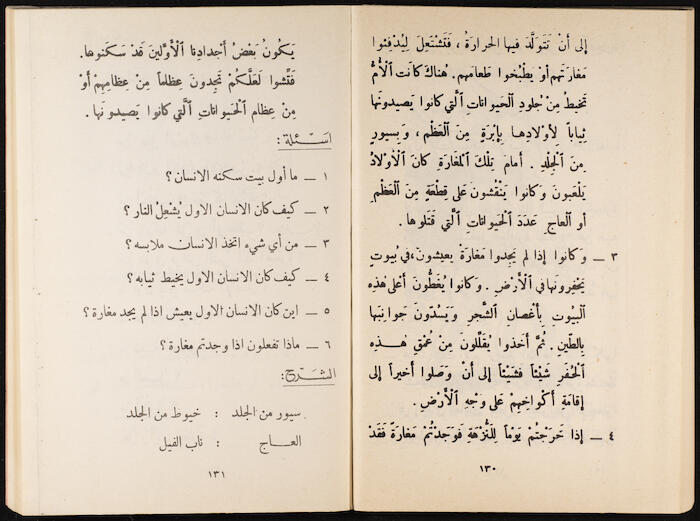 إلى أنْ تَتَوَلَّدَ فيها الحرارةُ ، فَتَشْتَعِلَ لِيُدَفِّئوا
مَغارَتَهم أو يَطْبُخوا طَعامَهم. هناكَ كانَتِ ٱلْأُمُّ
تَخيطُ مِنْ جُلودِ ٱلْحَيواناتِ ٱلَّتي كانوا يَصيدونَها
ثِياباً لِأوْلادِها بِإِبْرَةٍ مِنَ ٱلْعَظْمِ ، وَبِسيورٍ
مِنَ ٱلْجِلْدِ . أمامَ تِلْكَ ٱلْمَغارَةِ كانَ ٱلْأوْلادُ
يَلْعَبونَ وَكانوا يَنْقُشونَ عَلى قِطْعَةٍ مِنَ ٱلْعَظْمِ
أوِ ٱلْعاجِ عَدَدَ ٱلْحَيواناتِ ٱلَّتي قَتَلوها .
٣ ــ وَكانوا إذا لم يَجِدوا مَغارَةً يعيشونَ، في بُيوتٍ
يَحْفِرونَها في ٱلْأَرْضِ . وَكانوا يُغَطُّونَ أعْلى هٰذِهِ
ٱلْبيوتِ بِأغْصانِ ٱلشَّجَرِ وَيَسُدّونَ جَوانِبَها
بِالطّينِ . ثُمَّ أخَذوا يُقَلِّلونَ مِنْ عُمْقِ هٰذِهِ
ٱلْحُفَرِ شَيْئاً فشَيْئاً إلى أنْ وَصَلوا أخيراً إلى
إقامَةِ أكْواخِهِمْ عَلى وَجْهِ ٱلْأَرْضِ .
٤ ــ إذا خَرَجْتُمْ يَوْماً لِلنُّزْهَةِ فَوَجَدْتُمْ مَغارَةً فَقَدْ
١٣٠
يَكونُ بَعْضُ أجْدادِنا ٱلْأوَّلينَ قَدْ سَكَنوها.
فَتِّشوا لَعَلَّكُمْ تَجِدونَ عِظاماً مِنْ عِظامِهِمْ أوْ
مِنْ عِظامِ ٱلْحَيواناتِ ٱلَّتي كانوا يَصيدونَها .
اسئلة :
١ ــ ما أول بيت سكنه الانسان ؟
٢ ــ كيف كان الانسان الاول يُشْعِلُ النار ؟
٣ ــ من أي شيء اتخذ الانسان ملابسه ؟
٤ ــ كيف كان الانسان الاول يخيط ثيابه ؟
٥ ــ اين كان الانسان الاول يعيش اذا لم يجد مغارة ؟
٦ ــ ماذا تفعلون اذا وجدتم مغارة ؟
الشرح :
سيور من الجلد : خيوط من الجلد
العــاج : ناب الفيل
١٣١